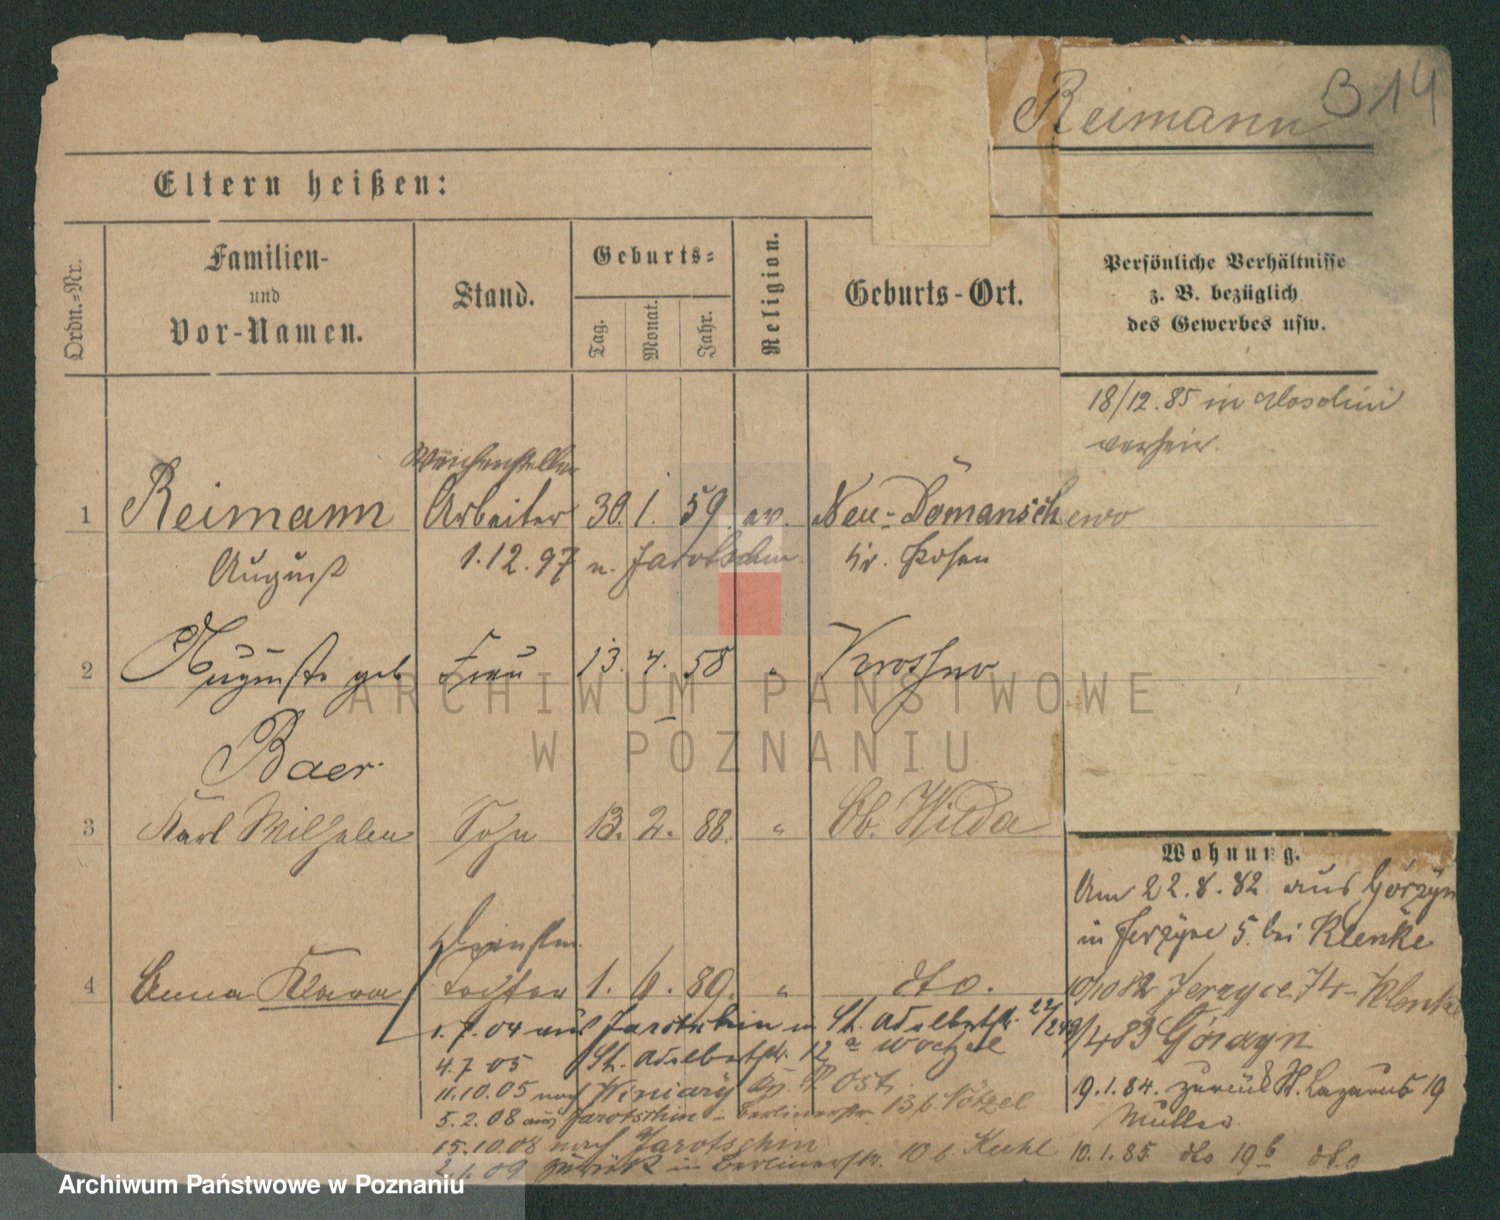 Reimann B 14
Eltern heißen:
Ordn.-Nr.
Familien-
und
Vor-Namen.
Stand.
Geburts-
Tag.
Monat.
Jahr.
Religion.
Geburts-Ort.
Persönliche Verhältnisse
z. B. bezüglich
des Gewerbes usw.
18/12. 85 in
Weichensteller
1 Reimann Arbeiter 30. 1. 59. ev. Neu-Domanschewo
August 1.12.97 n. Jarotschin. Kr. Posen
2 Auguste geb Frau 13. 4. 58 " Kroschno
Baer
3 Karl Wilhelm Sohn 13. 2. 88. " Ob. Wilda
Wohnung.
Am 22.8.82 aus Górczyn
in Jerzyce 5. bei Klenke
4 Anna Klara Tochter 1. 9. 89. " dto.
10/10 82 Jerzyce Klenke
1.7.04 aus Jarotschin n St. Adalbertstr. 22/24
9/4 83 Górczyn
4.7 05 St. Adalbertstr. 12a
11.10.05 nach Winiary
9.1.84. zurück St. Lazarus 19
Müller
5.2.08 aus Jarotschin - Berlinerstr. 13 b. Nötzel
15.10.08 nach Jarotschin
2.1.09 zurück in Berlinerstr. 10 b. Kuhl
10.1.85 dto 19b dto
ARCHIWUM PAŃSTWOWE
W POZNANIU
Archiwum Państwowe w Poznaniu